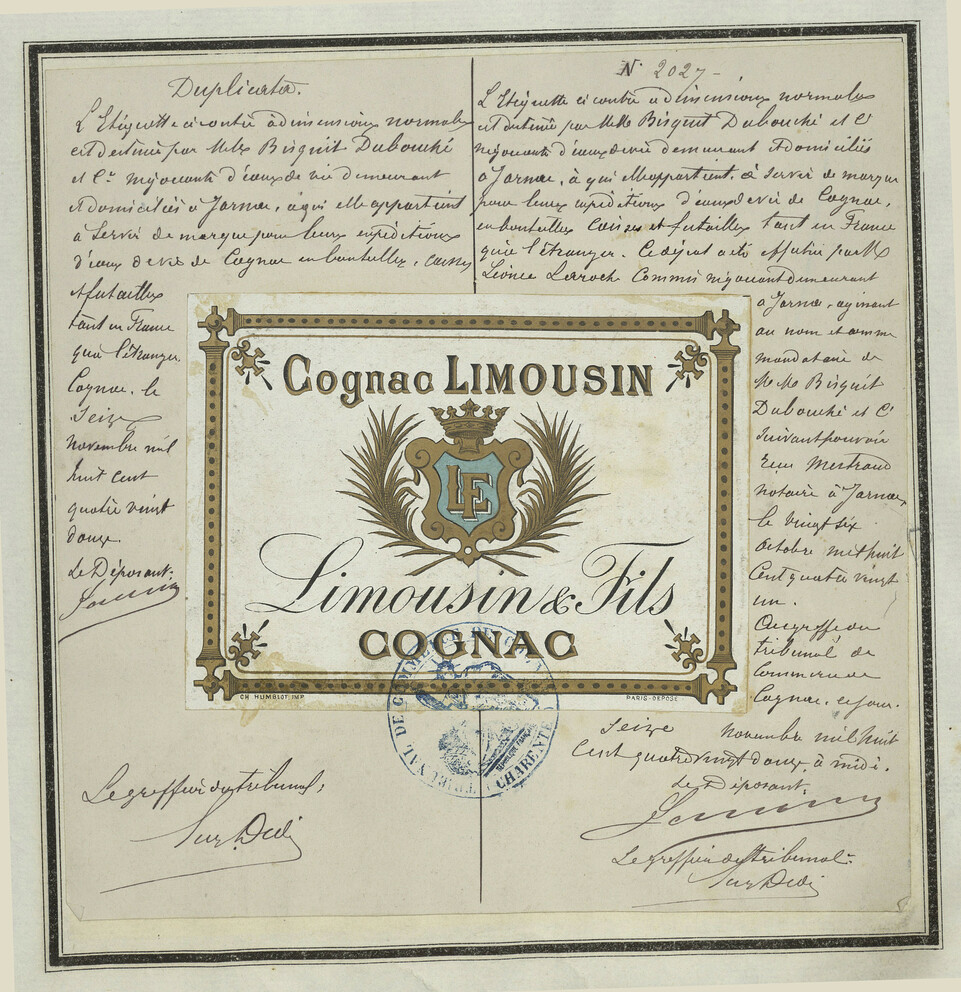 Duplicata.
L'Etiquette ci contre à dimensions normales
est destinée par M.M. Bisquit Dubouché
et Cie négociants d'eaux de vie demeurant
et domiciliés à Jarnac, à qui elle appartient
à servir de marque pour leurs expéditions
d'eaux de vie de Cognac en bouteilles, caisses
et futailles
tant en France
qu'à l'étranger
Cognac, le
Seize
novembre mil
huit cent
quatre vingt
douze.
Le Déposant:
Le greffier du tribunal,
N° 2027 -
L'Etiquette ci contre à dimensions normales
est destinée par M.M. Bisquit Dubouché et Cie
négociants d'eaux de vie demeurant et domiciliés
à Jarnac, à qui elle appartient, à servir de marque
pour leurs expéditions d'eaux de vie de Cognac,
en bouteilles caisses et futailles tant en France
qu'à l'étranger. Ce dépôt a été effectué par M.
Léonce Larroche Commis négociant demeurant
à Jarnac, agissant
au nom et comme
mandataire de
M.M. Bisquit
Dubouché et Cie
suivant pouvoir
notaire à Jarnac,
le vingt six
octobre mil huit
cent quatre vingt
un.
Au greffe du
tribunal de
Commerce de
Cognac, ce jour
Seize novembre mil huit
cent quatre vingt douze, à midi.
Le Déposant:
Le greffier du tribunal:
Cognac LIMOUSIN
LF
Limousin & Fils
COGNAC
CH. HUMBLOT, IMP.
PARIS - DÉPOSÉ
TRIBUNAL DE COMMERCE
CHARENTE